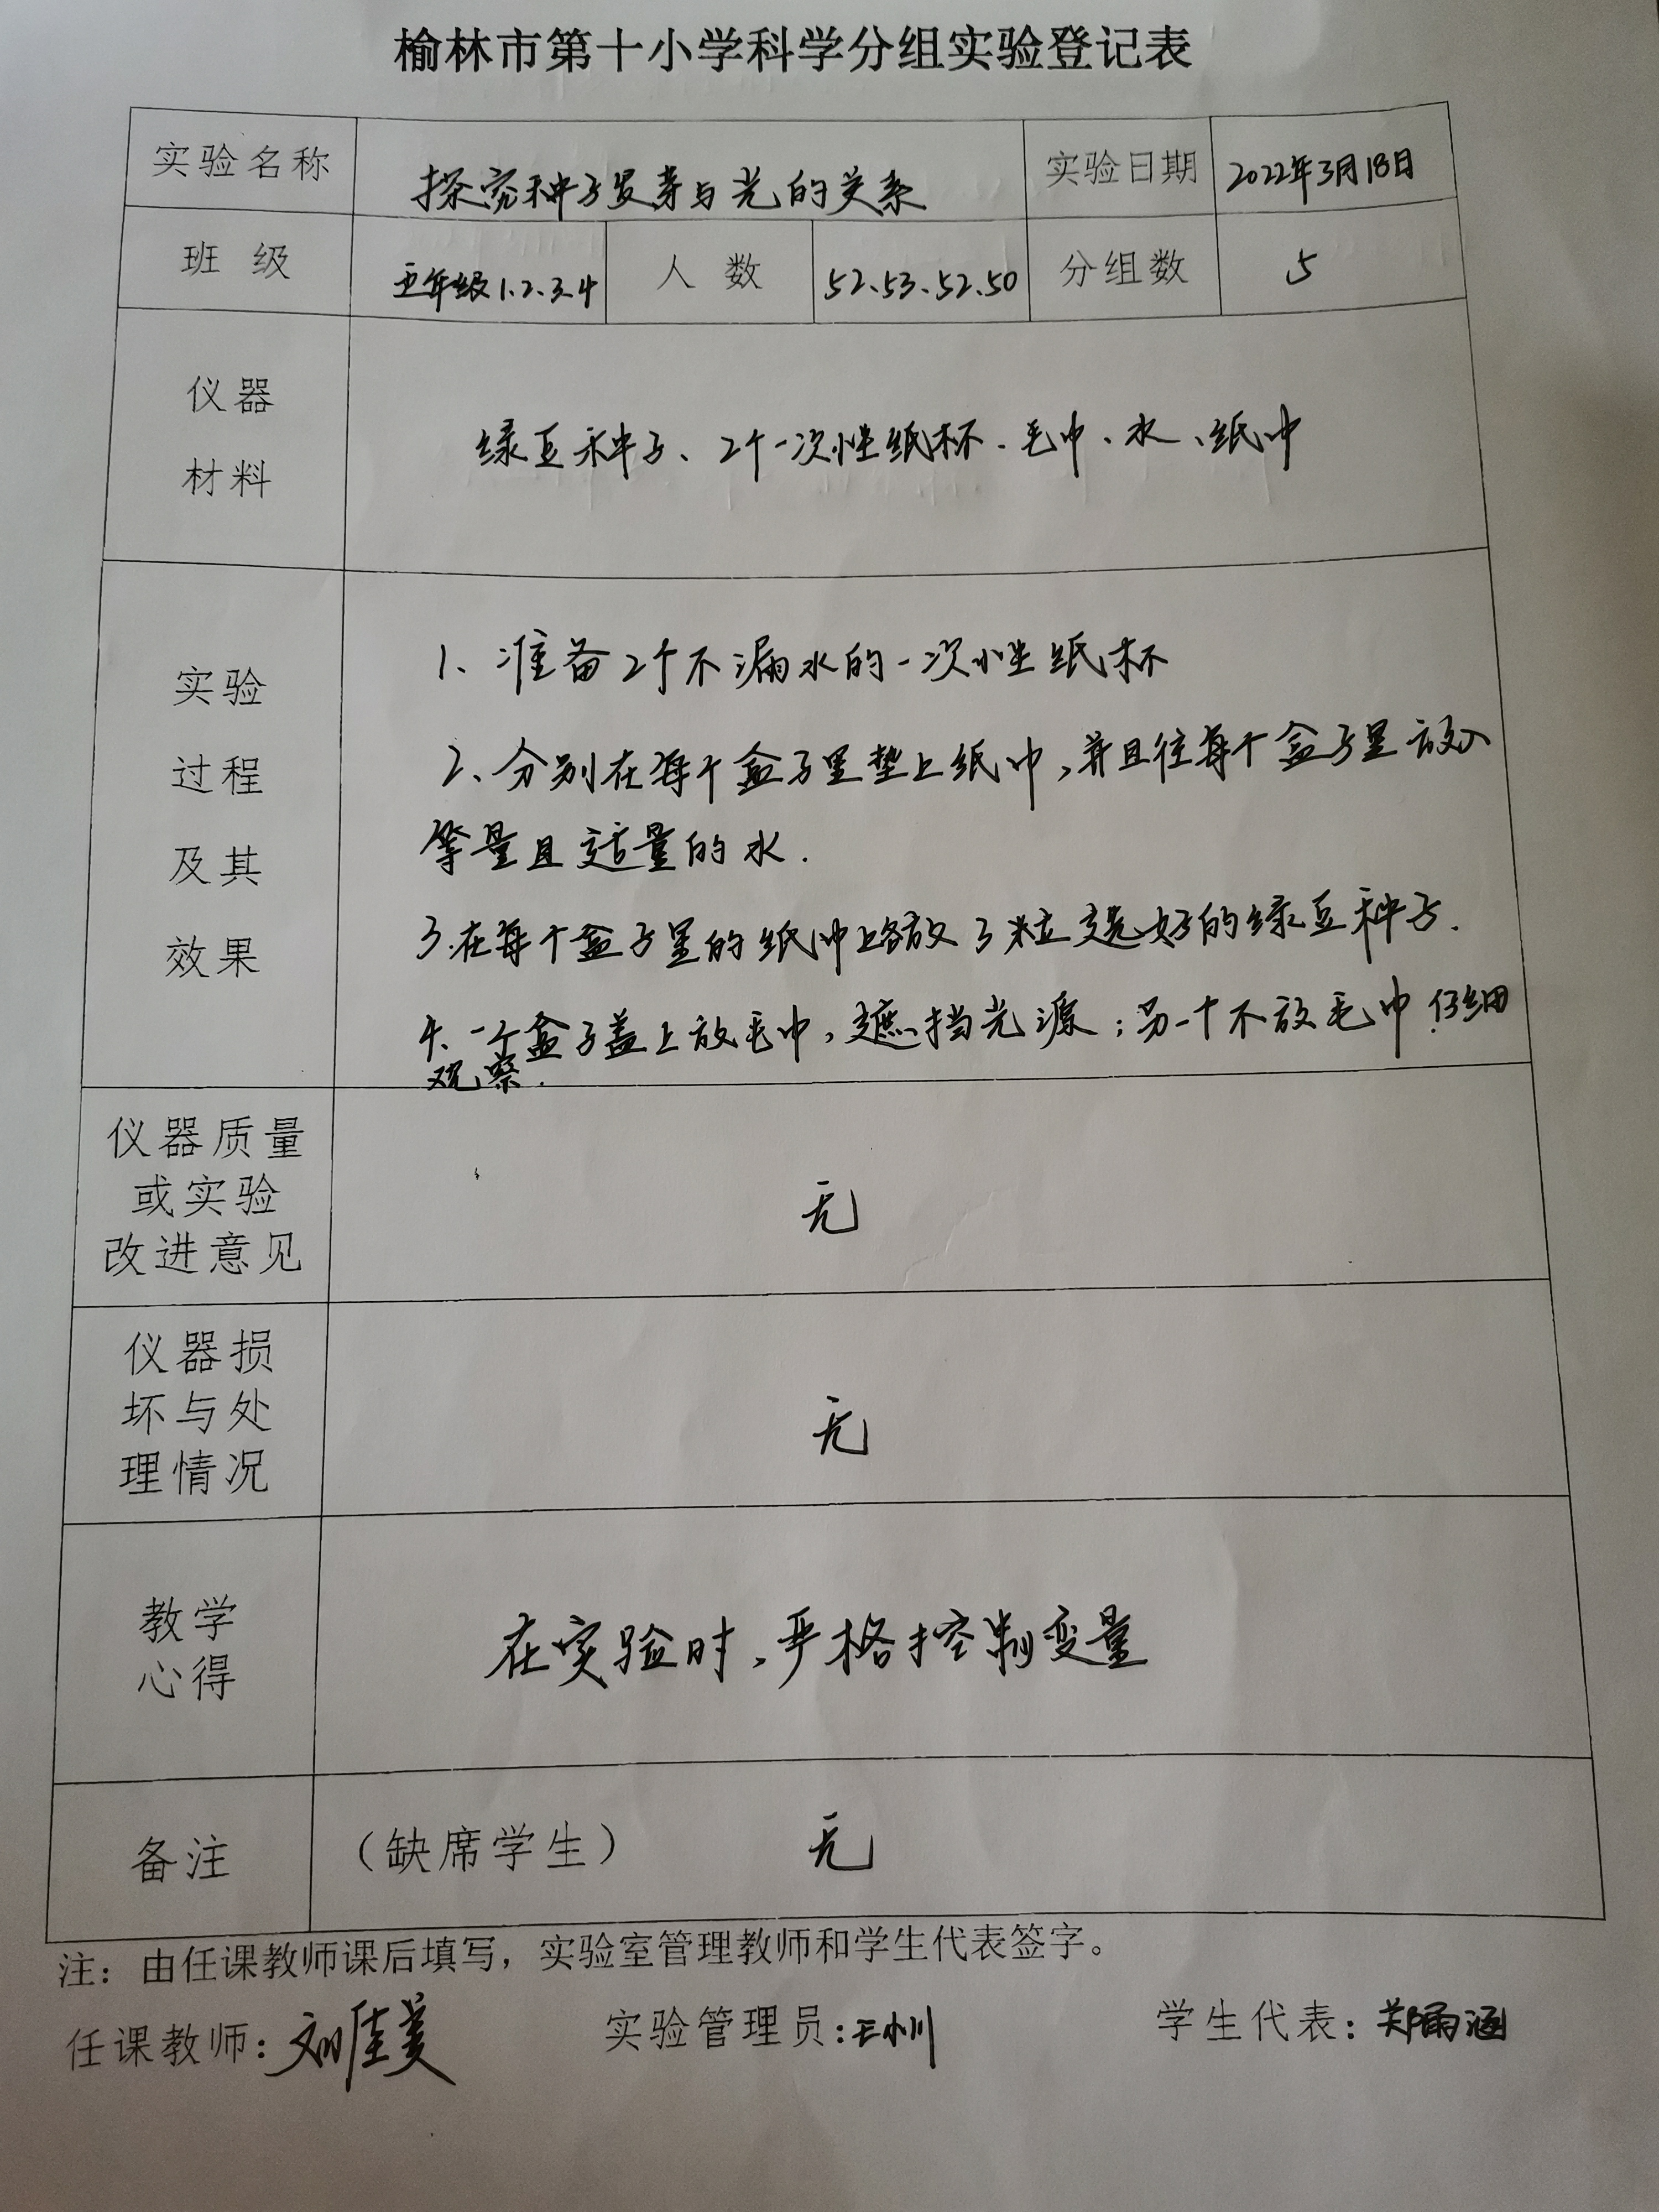 榆林市第十小学科学分组实验登记表
实验名称 探究种子发芽与光的关系 实验日期 2022年3月18日
班 级 五年级1.2.3.4 人 数 52.53.52.50 分组数 5
仪器
材料
绿豆种子、2个一次性纸杯、毛巾、水、纸巾
实验
过程
及其
效果
1、准备2个不漏水的一次性纸杯
2、分别在每个盒子里垫上纸巾,并且往每个盒子里放入
等量且适量的水.
3.在每个盒子里的纸巾上各放3粒选好的绿豆种子.
4、一个盒子盖上放毛巾,遮挡光源;另一个不放毛巾.仔细
观察.
仪器质量
或实验
改进意见
无
仪器损
坏与处
理情况
无
教学
心得
在实验时,严格控制变量
备注 (缺席学生) 无
注：由任课教师课后填写，实验室管理教师和学生代表签字。
任课教师：刘佳美 实验管理员：王小川 学生代表：郑雨涵